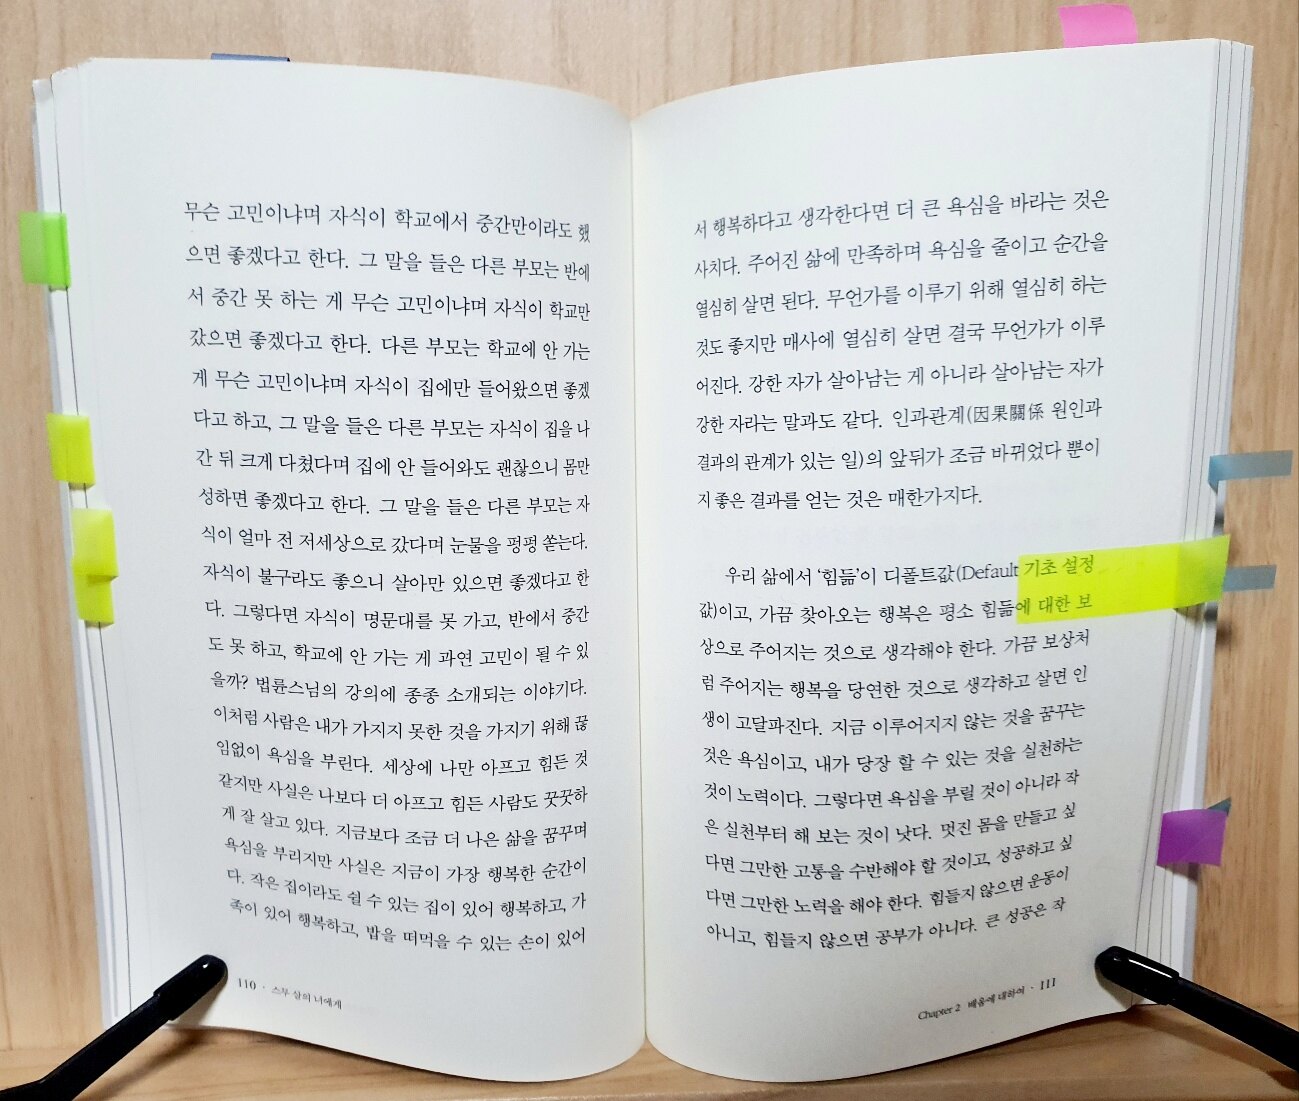 무슨 고민이냐며 자식이 학교에서 중간만이라도 했
으면 좋겠다고 한다. 그 말을 들은 다른 부모는 반에
서 중간 못 하는 게 무슨 고민이냐며 자식이 학교만
갔으면 좋겠다고 한다. 다른 부모는 학교에 안 가는
게 무슨 고민이냐며 자식이 집에만 들어왔으면 좋겠
다고 하고, 그 말을 들은 다른 부모는 자식이 집을 나
간 뒤 크게 다쳤다며 집에 안 들어와도 괜찮으니 몸만
성하면 좋겠다고 한다. 그 말을 들은 다른 부모는 자
식이 얼마 전 저세상으로 갔다며 눈물을 펑펑 쏟는다.
자식이 불구라도 좋으니 살아만 있으면 좋겠다고 한
다. 그렇다면 자식이 명문대를 못 가고, 반에서 중간
도 못 하고, 학교에 안 가는 게 과연 고민이 될 수 있
을까? 법륜스님의 강의에 종종 소개되는 이야기다.
이처럼 사람은 내가 가지지 못한 것을 가지기 위해 끊
임없이 욕심을 부린다. 세상에 나만 아프고 힘든 것
같지만 사실은 나보다 더 아프고 힘든 사람도 꿋꿋하
게 잘 살고 있다. 지금보다 조금 더 나은 삶을 꿈꾸며
욕심을 부리지만 사실은 지금이 가장 행복한 순간이
다. 작은 집이라도 쉴 수 있는 집이 있어 행복하고, 가
족이 있어 행복하고, 밥을 떠먹을 수 있는 손이 있어
110 · 스무 살의 너에게
서 행복하다고 생각한다면 더 큰 욕심을 바라는 것은
사치다. 주어진 삶에 만족하며 욕심을 줄이고 순간을
열심히 살면 된다. 무언가를 이루기 위해 열심히 하는
것도 좋지만 매사에 열심히 살면 결국 무언가가 이루
어진다. 강한 자가 살아남는 게 아니라 살아남는 자가
강한 자라는 말과도 같다. 인과관계(因果關係 원인과
결과의 관계가 있는 일)의 앞뒤가 조금 바뀌었다 뿐이
지 좋은 결과를 얻는 것은 매한가지다.
우리 삶에서 ‘힘듦’이 디폴트값(Default 기초 설정
값)이고, 가끔 찾아오는 행복은 평소 힘듦에 대한 보
상으로 주어지는 것으로 생각해야 한다. 가끔 보상처
럼 주어지는 행복을 당연한 것으로 생각하고 살면 인
생이 고달파진다. 지금 이루어지지 않는 것을 꿈꾸는
것은 욕심이고, 내가 당장 할 수 있는 것을 실천하는
것이 노력이다. 그렇다면 욕심을 부릴 것이 아니라 작
은 실천부터 해 보는 것이 낫다. 멋진 몸을 만들고 싶
다면 그만한 고통을 수반해야 할 것이고, 성공하고 싶
다면 그만한 노력을 해야 한다. 힘들지 않으면 운동이
아니고, 힘들지 않으면 공부가 아니다. 큰 성공은 작
Chapter 2 배움에 대하여 · 111